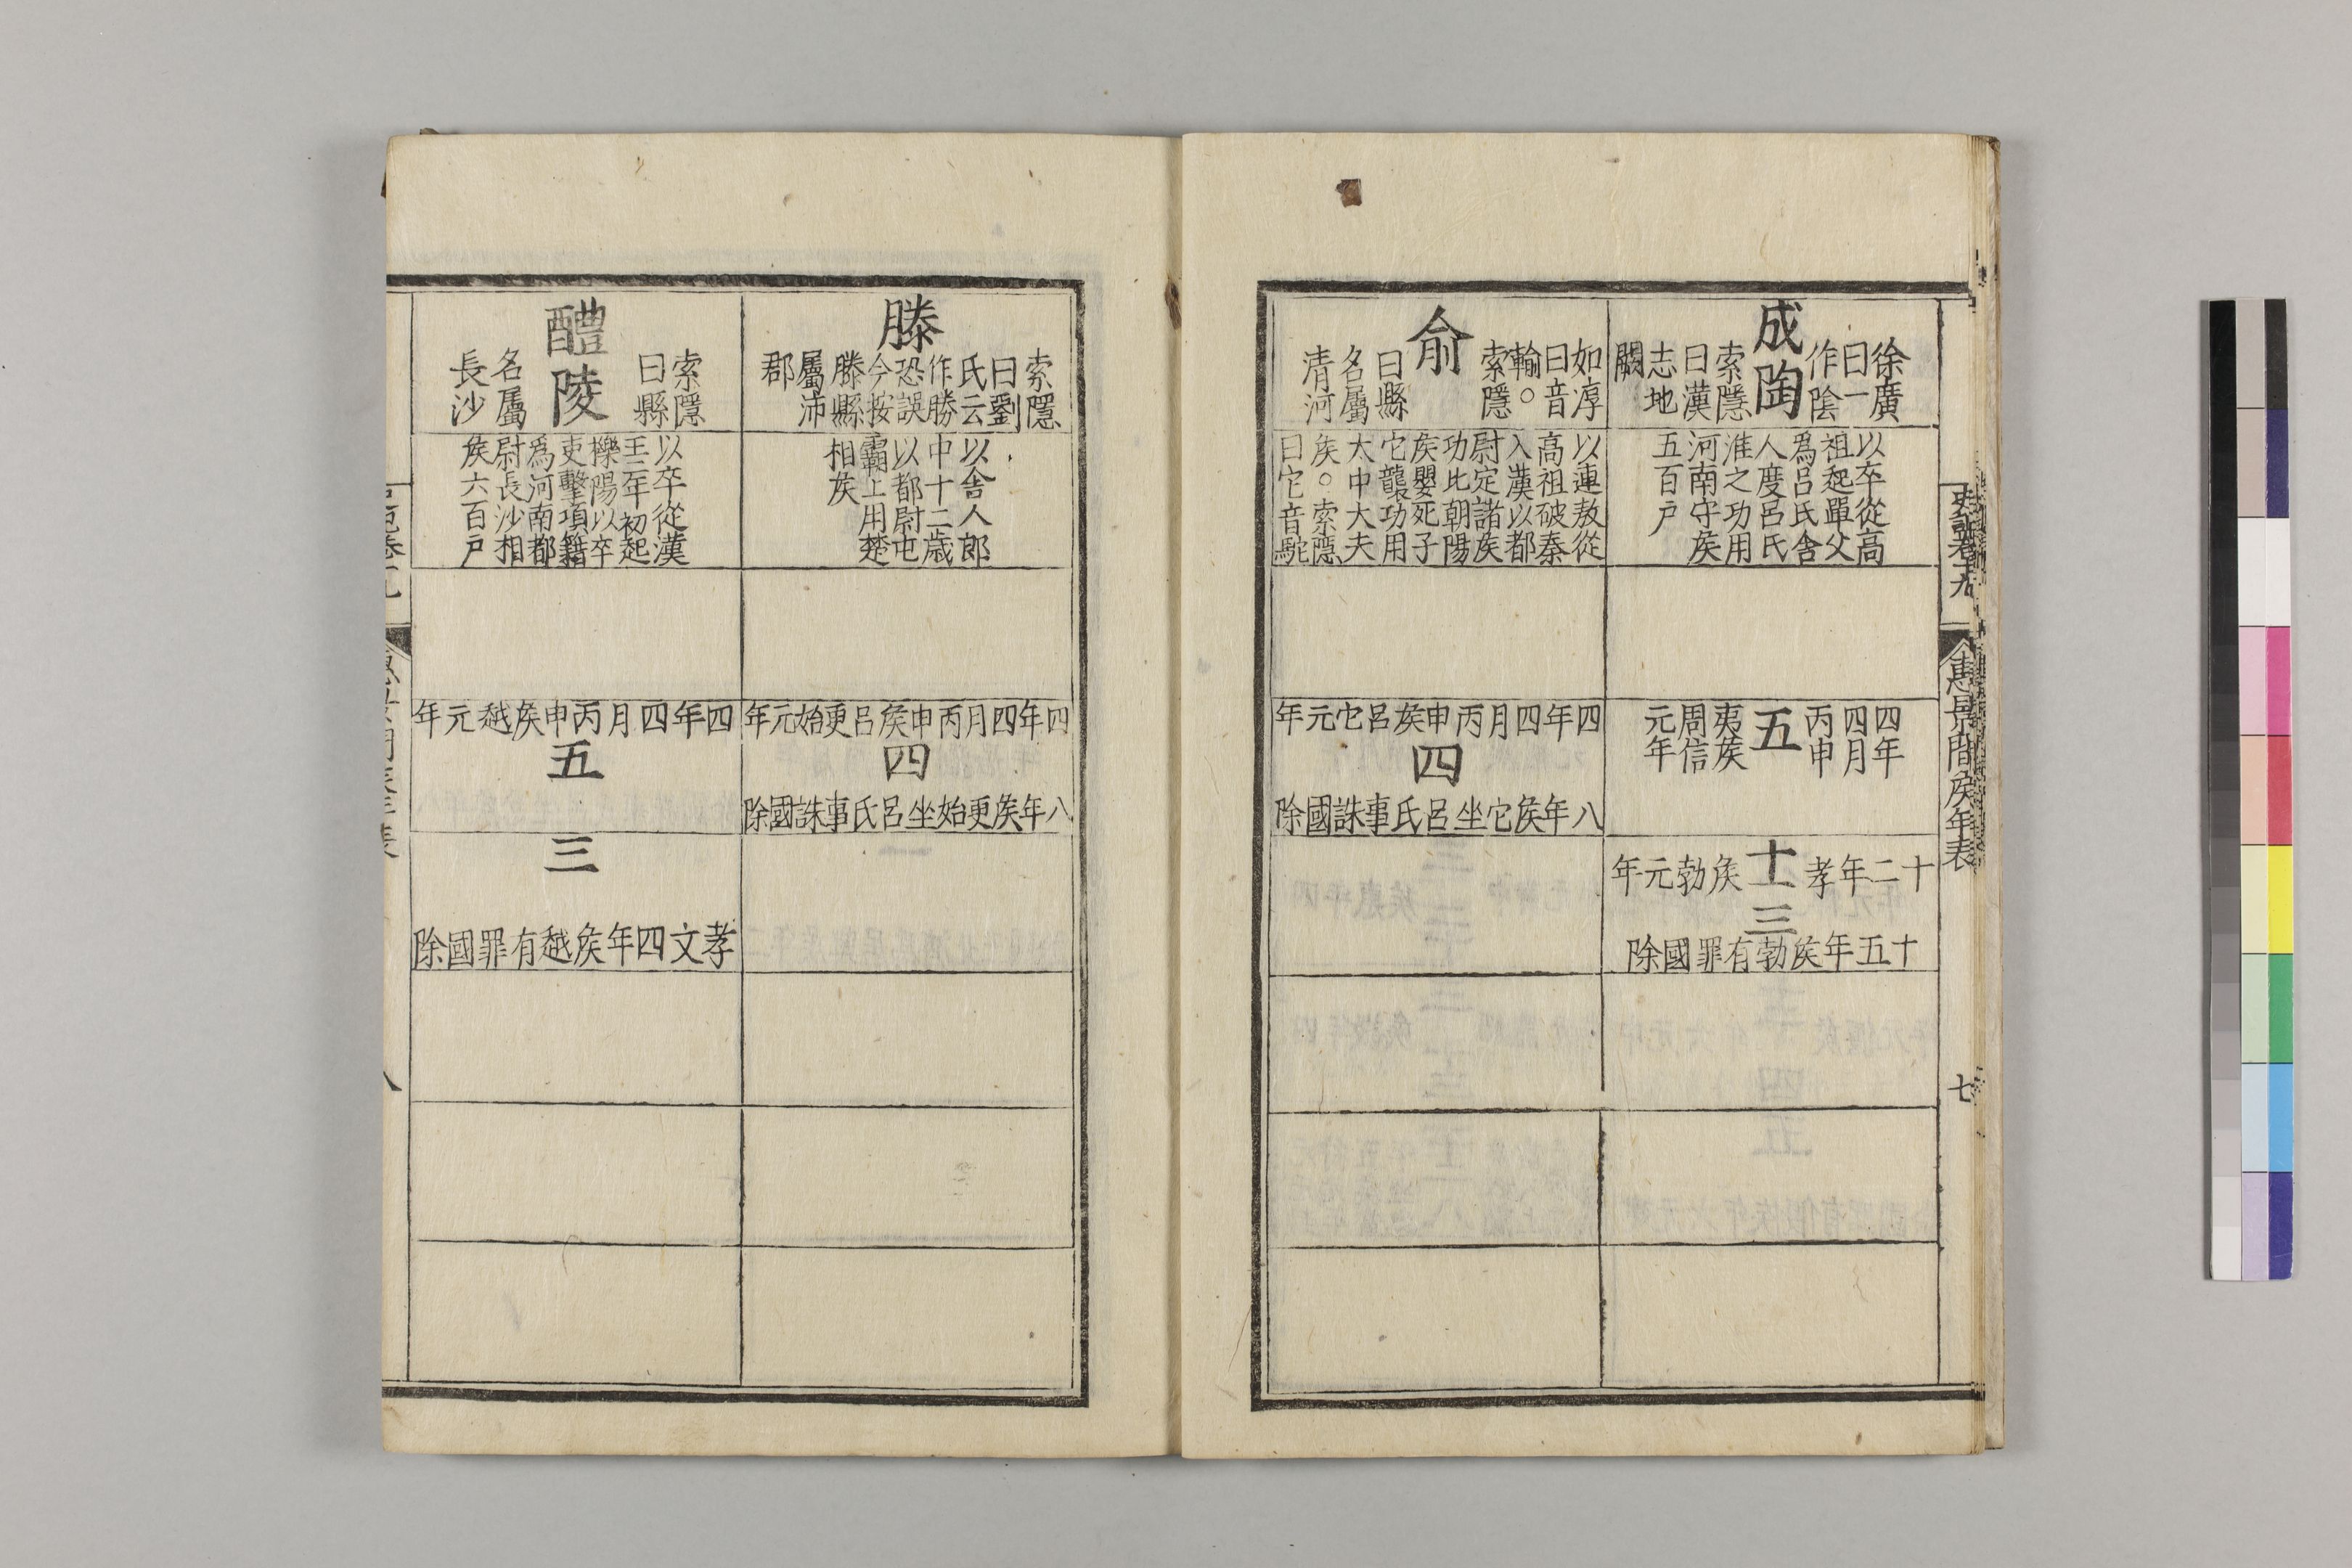 史記卷十九
惠景間矦年表
七
成陶
徐廣
曰一
作陰
索隱
曰漢
志地
闕
以卒從高
祖起單父
爲呂氏舍
人度呂氏
淮之功用
河南守矦
五百戶
四年
四月
丙申
夷矦
周信
元年
五
十二年孝矦勃元年
十三
十五年矦勃有罪國除
俞
如淳
曰音
輸○
索隱
曰縣
名屬
清河
以連敖從
高祖破秦
入漢以都
尉定諸矦
功比朝陽
矦嬰死子
它襲功用
太中大夫
矦○索隱
曰它音駝
四年四月丙申矦呂它元年
四
八年矦它坐呂氏事誅國除
滕
索隱
曰劉
氏云
作勝
恐誤
今按
滕縣
屬沛
郡
以舍人郎
中十二歲
以都尉屯
霸上用楚
相矦
四年四月丙申矦呂更始元年
四
八年矦更始坐呂氏事誅國除
醴陵
索隱
曰縣
名屬
長沙
以卒從漢
王二年初起
櫟陽以卒
吏擊項籍
爲河南都
尉長沙相
矦六百戶
四年四月丙申矦越元年
五
三
孝文四年矦越有罪國除
八